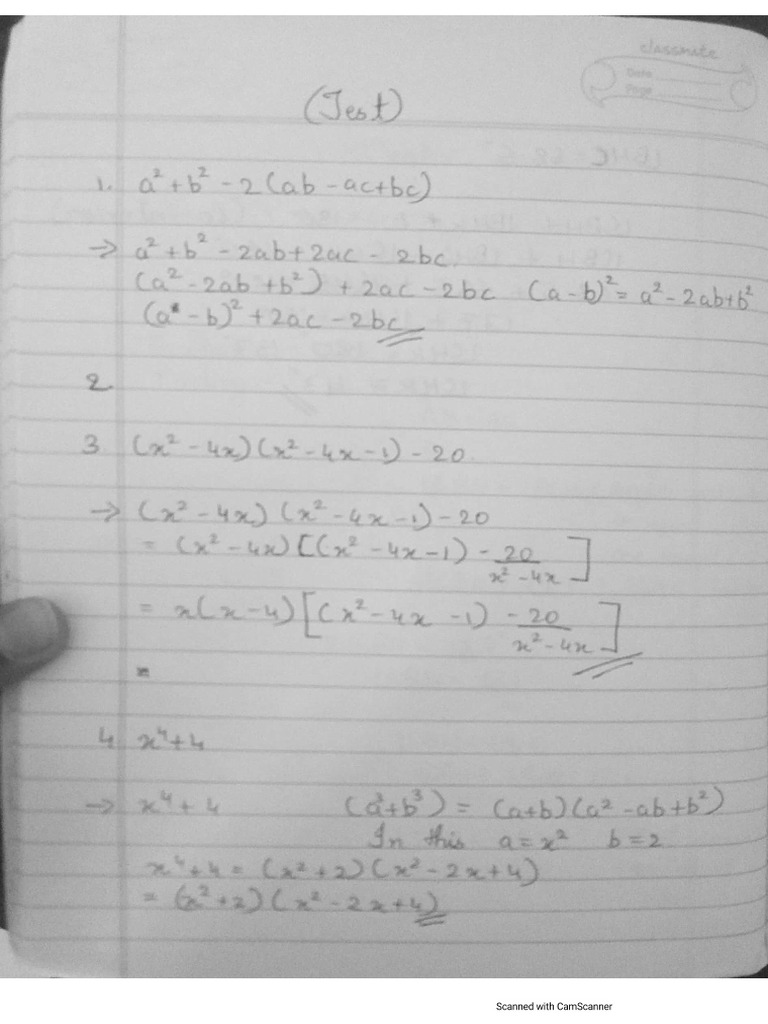 classmate
Date
Page
(Test)
1. a² + b² - 2(ab - ac + bc)
→ a² + b² - 2ab + 2ac - 2bc.
(a² - 2ab + b²) + 2ac - 2bc (a - b)² = a² - 2ab + b²
(a - b)² + 2ac - 2bc
2.
3 (x² - 4x)(x² - 4x - 1) - 20.
→ (x² - 4x)(x² - 4x - 1) - 20
= (x² - 4x)[(x² - 4x - 1) - 20/(x² - 4x)]
= x(x - 4)[(x² - 4x - 1) - 20/(x² - 4x)]
=
4. x⁴ + 4
→ x⁴ + 4 (a³ + b³) = (a + b)(a² - ab + b²)
In this a = x² b = 2
x⁴ + 4 = (x² + 2)(x² - 2x + 4)
= (x² + 2)(x² - 2x + 4)
Scanned with CamScanner